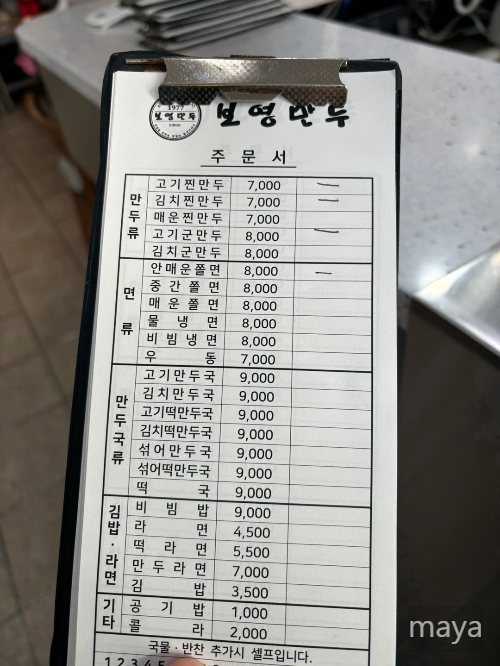 1977
보영만두
보영만두
주문서
만두류
고기찐만두 7,000 一
김치찐만두 7,000 一
매운찐만두 7,000
고기군만두 8,000 一
김치군만두 8,000
면류
안매운쫄면 8,000 一
중간쫄면 8,000
매운쫄면 8,000
물냉면 8,000
비빔냉면 8,000
우동 7,000
만두국류
고기만두국 9,000
김치만두국 9,000
고기떡만두국 9,000
김치떡만두국 9,000
섞어만두국 9,000
섞어떡만두국 9,000
떡국 9,000
김밥·라면
비빔밥 9,000
라면 4,500
떡라면 5,500
만두라면 7,000
김밥 3,500
기타
공기밥 1,000
콜라 2,000
국물·반찬 추가시 셀프입니다.
1 2 3 4 5
maya